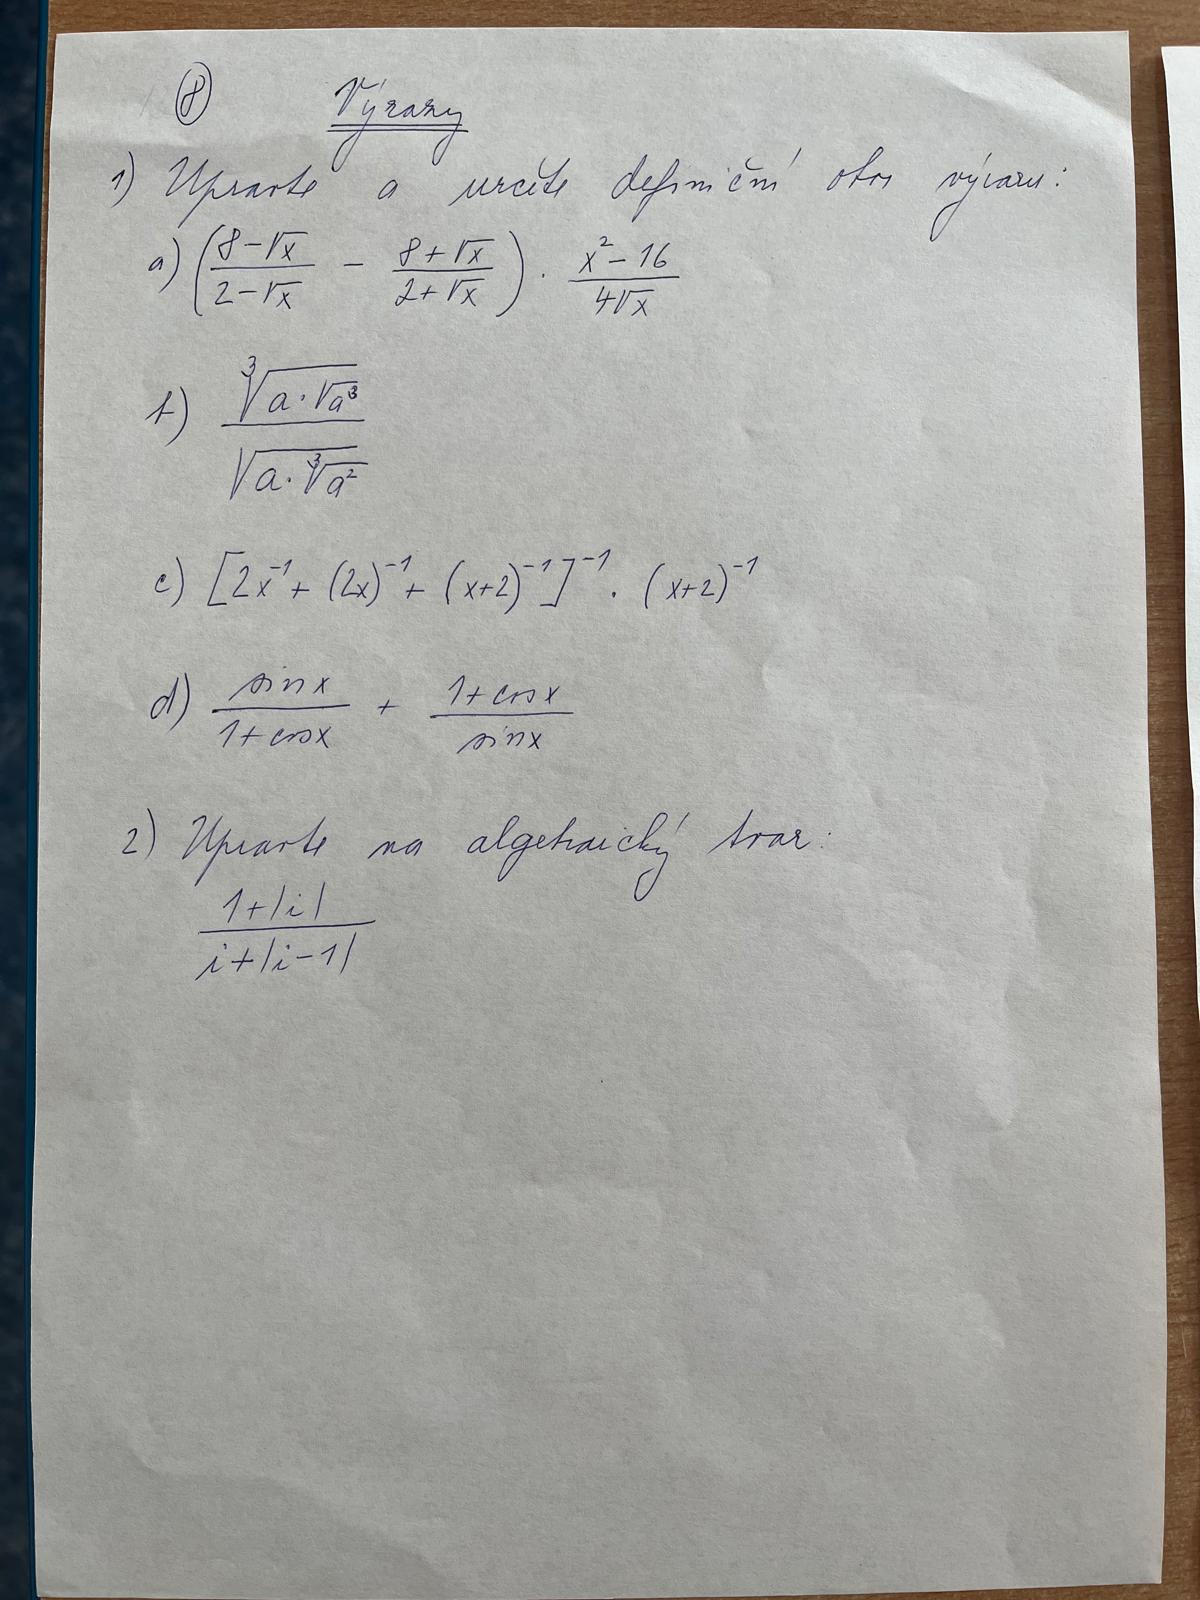 8 Výrazy
1) Upravte a určete definiční obor výrazu:
a) ((8-√x)/(2-√x) - (8+√x)/(2+√x)) · (x²-16)/(4√x)
b) ∛(a·√a³) / √(a·∛a²)
c) [2x⁻¹ + (2x)⁻¹ + (x+2)⁻¹]⁻¹ · (x+2)⁻¹
d) sinx/(1+cosx) + (1+cosx)/sinx
2) Upravte na algebraický tvar:
(1+|i|)/(i+|i-1|)